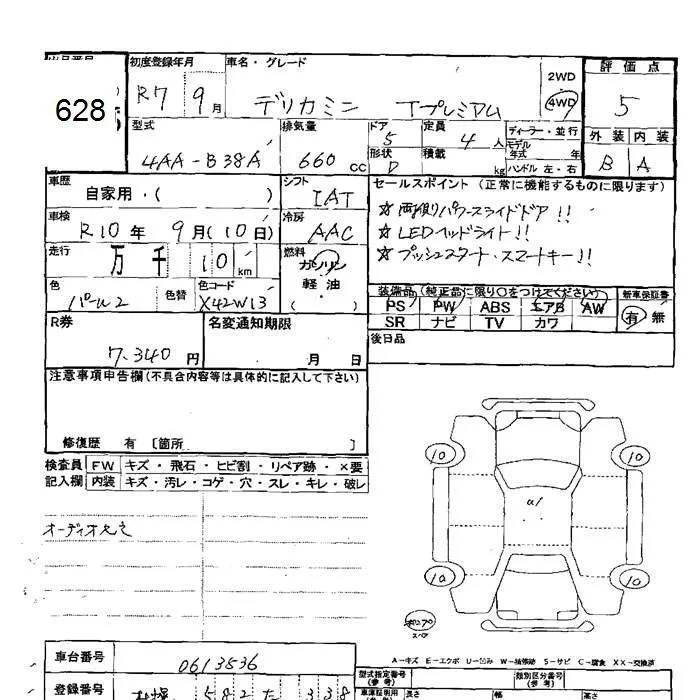 初度登録年月
車名・グレード
2WD
4WD
評価点
628
R7 9月
デリカミニ Tプレミアム
5
型式
排気量
ドア 5
定員 4人
ディーラー・並行
モデル年式 年
外装
内装
4AA-B38A
660 cc
形状 D
積載 kg
ハンドル 左・右
B
A
車歴
自家用・( )
シフト
IAT
セールスポイント (正常に機能するものに限ります)
☆両側パワースライドドア!!
☆LEDヘッドライト!!
☆プッシュスタート・スマートキー!!
車検
R10年 9月(10日)
冷房
AAC
走行
万 千 10 km
燃料
ガソリン
軽油
( )
色
パール2
色替
色コード
X42W13
装備品 (純正品に限り○をつけてください)
PS PW ABS エアB AW
SR ナビ TV カワ
新車保証書
有 無
R券
7,340円
名変通知期限
月 日
後日品
注意事項申告欄(不具合内容等は具体的に記入して下さい)
修復歴 有 〔箇所 〕
検査員記入欄
FW キズ・飛石・ヒビ割・リペア跡・×要
内装 キズ・汚レ・コゲ・穴・スレ・キレ・破レ
オーディオレス
10
10
10
10
A-キズ E-エクボ U-凹み W-補修跡 S-サビ C-腐食 XX-交換済
車台番号
0613536
登録番号
582 た 338
型式指定番号(参考)
類別区分番号(参考)
長さ
幅
高さ